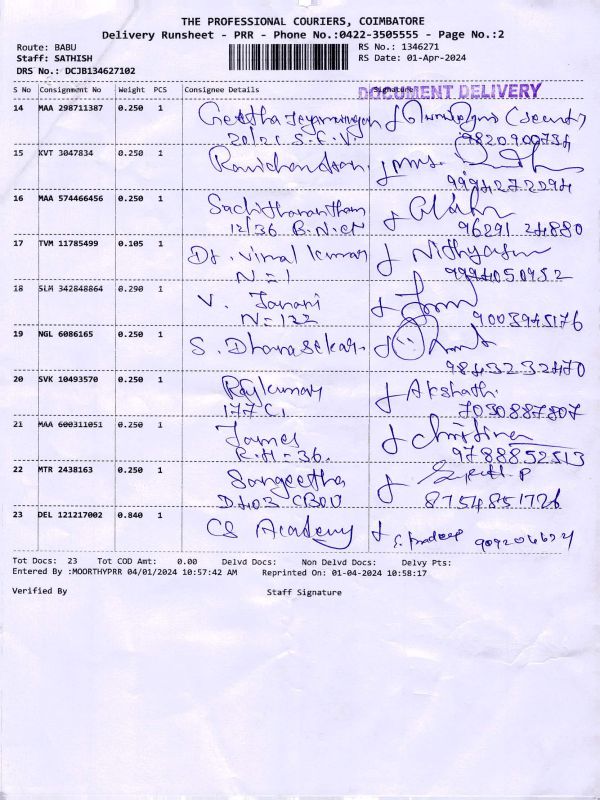 THE PROFESSIONAL COURIERS, COIMBATORE
Delivery Runsheet - PRR - Phone No.:0422-3505555 - Page No.:2
Route: BABU
Staff: SATHISH
DRS No.: DCJB134627102
RS No.: 1346271
RS Date: 01-Apr-2024
DOCUMENT DELIVERY
S No Consignment No Weight PCS Consignee Details Signature
14 MAA 298711387 0.250 1
9820900734
15 KVT 3047834 0.250 1 Ravichandran
9994272294
16 MAA 574466456 0.250 1
12/36 B.N.CN 96291 24880
17 TVM 11785499 0.105 1 Dr. Vimal Kumar Nithyasri
N=1 9994050952
18 SLM 342848864 0.290 1 V. Janani
N=122 9003945176
19 NGL 6086165 0.250 1 S. Dhanasekar
9843232470
20 SVK 10493570 0.250 1 Rajkumar Akshath
177 C1 7030887807
21 MAA 600311051 0.250 1 James Christina
R.H=36. 9788852513
22 MTR 2438163 0.250 1 Sangeetha
D403 CBOU 8754851726
23 DEL 121217002 0.840 1 CS Academy S. Pradeep
Tot Docs: 23 Tot COD Amt: 0.00 Delvd Docs: Non Delvd Docs: Delvy Pts:
Entered By :MOORTHYPRR 04/01/2024 10:57:42 AM Reprinted On: 01-04-2024 10:58:17
Verified By Staff Signature